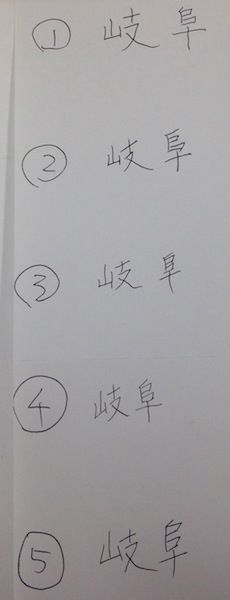 ① 岐阜
② 岐阜
③ 岐阜
④ 岐阜
⑤ 岐阜